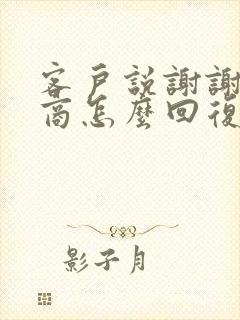 客戶説謝謝
商怎麽回復
影子月